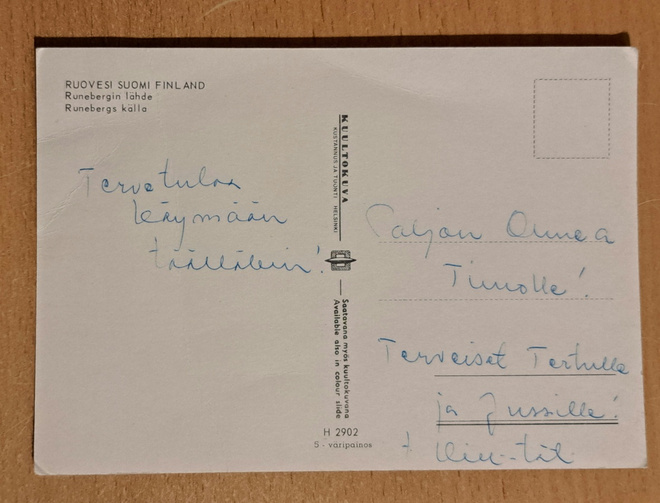 RUOVESI SUOMI FINLAND
Runebergin lähde
Runebergs källa
Tervetuloa
käymään
täälläkin!
KUULTOKUVA
KUSTANNUS JA TUONTI HELSINKI
Saatavana myös kuultokuvana
Available also in colour slide
H 2902
5 - väripainos
Paljon Onnea
Timolle!
Terveiset Tertulle
ja Jussille!